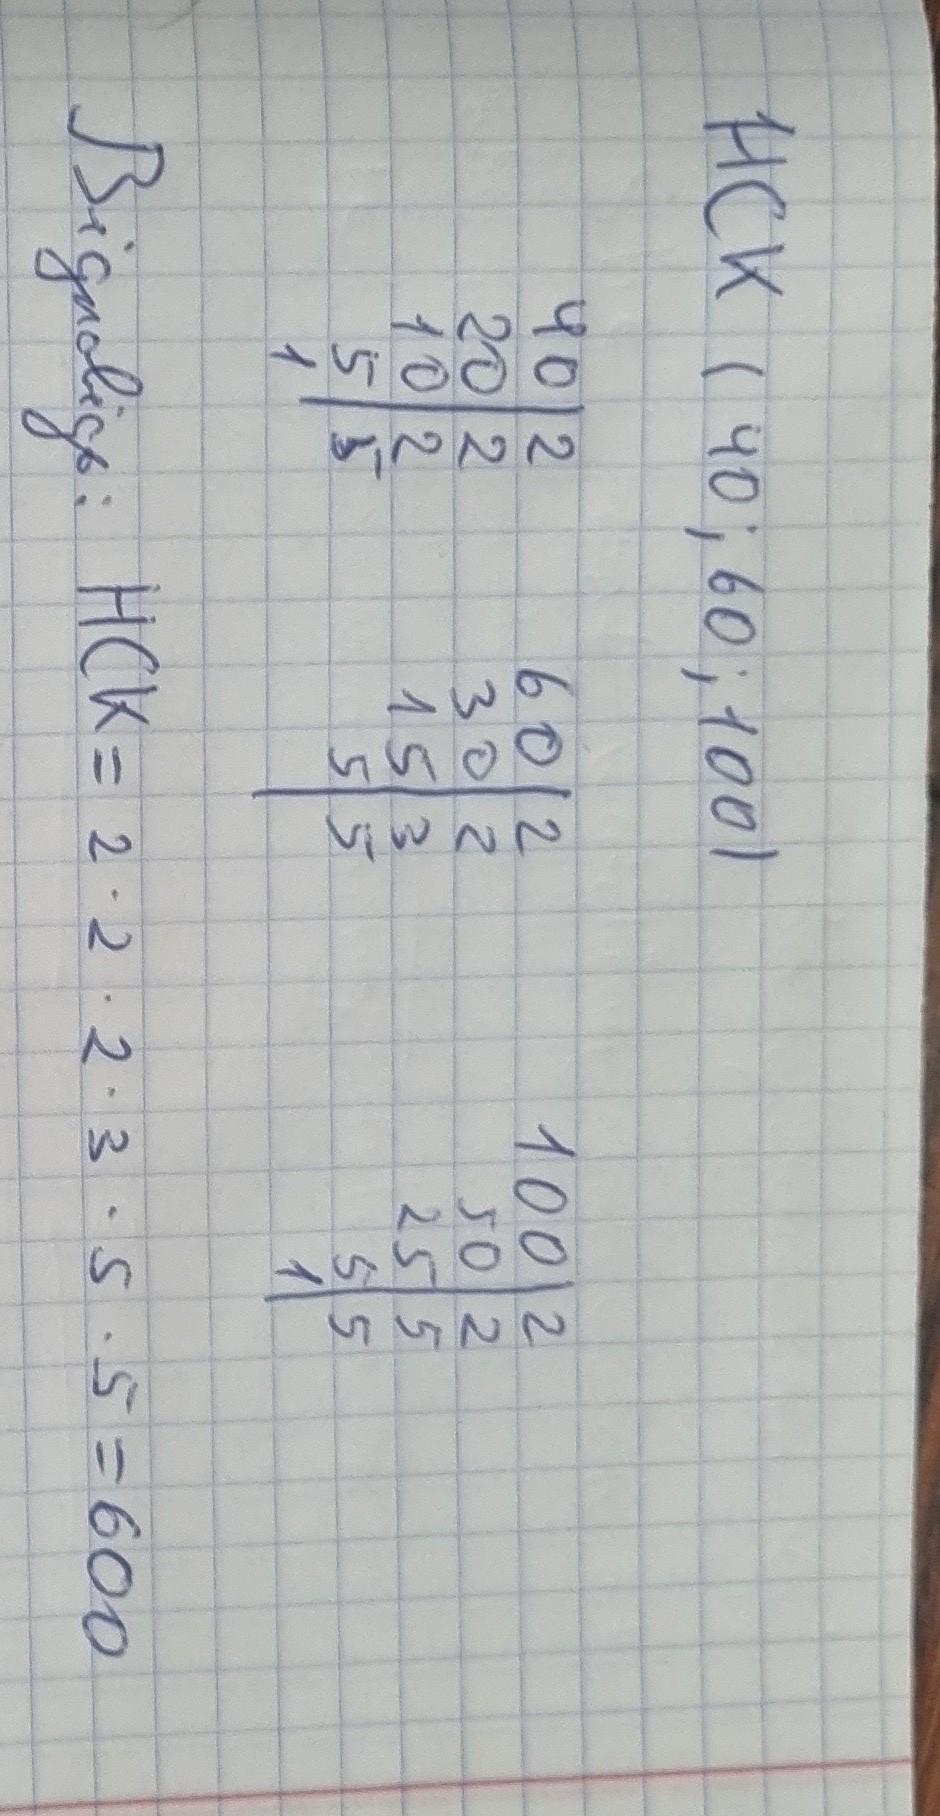 НСК (40; 60; 100)
40|2 60|2 100|2
20|2 30|2 50|2
10|2 15|3 25|5
5|5 5|5 5|5
1| | 1|
Відповідь: НСК = 2 · 2 · 2 · 3 · 5 · 5 = 600